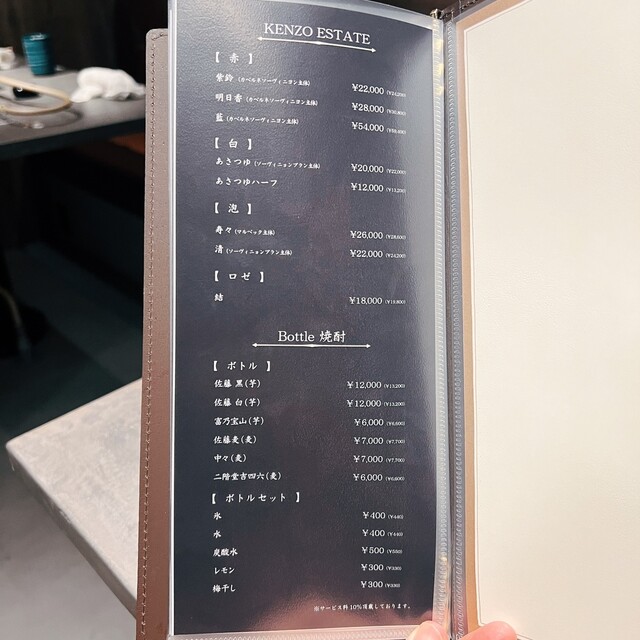 KENZO ESTATE
【 赤 】
紫鈴 (カベルネソーヴィニヨン主体) ¥22,000 (¥24,200)
明日香 (カベルネソーヴィニヨン主体) ¥28,000 (¥30,800)
藍 (カベルネソーヴィニヨン主体) ¥54,000 (¥59,400)
【 白 】
あさつゆ (ソーヴィニョンブラン主体) ¥20,000 (¥22,000)
あさつゆハーフ ¥12,000 (¥13,200)
【 泡 】
寿々 (マルベック主体) ¥26,000 (¥28,600)
清 (ソーヴィニョンブラン主体) ¥22,000 (¥24,200)
【 ロゼ 】
結 ¥18,000 (¥19,800)
Bottle 焼酎
【 ボトル 】
佐藤 黒(芋) ¥12,000 (¥13,200)
佐藤 白(芋) ¥12,000 (¥13,200)
富乃宝山(芋) ¥6,000 (¥6,600)
佐藤麦(麦) ¥7,000 (¥7,700)
中々(麦) ¥7,000 (¥7,700)
二階堂吉四六(麦) ¥6,000 (¥6,600)
【 ボトルセット 】
氷 ¥400 (¥440)
水 ¥400 (¥440)
炭酸水 ¥500 (¥550)
レモン ¥300 (¥330)
梅干し ¥300 (¥330)
※サービス料10%頂戴しております。